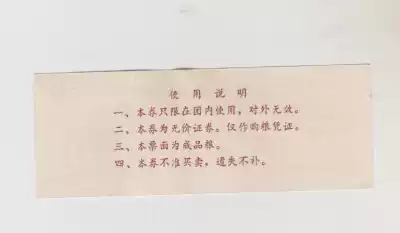 使用说明
一、本券只限在团内使用，对外无效。
二、本券为无价证券。仅作购粮凭证。
三、本票面为成品粮。
四、本券不准买卖，遗失不补。